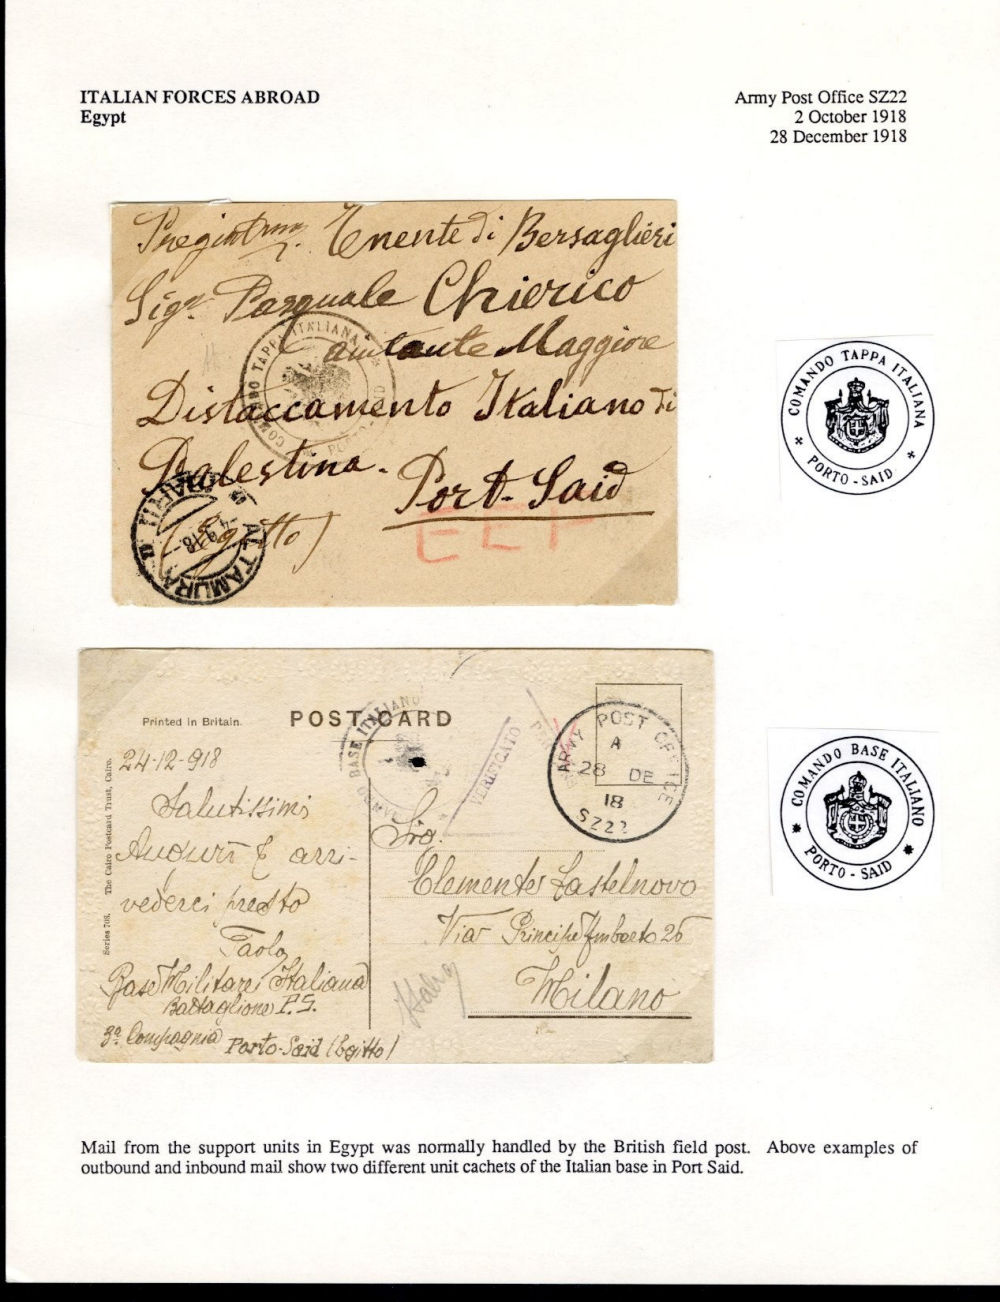 ITALIAN FORCES ABROAD
Egypt
Army Post Office SZ22
2 October 1918
28 December 1918
Tenente di Bersaglieri
Sigr. Pasquale Chierico
aiutante Maggiore
Distaccamento Italiano di
Palestina. Port-Said
(Egitto)
EEF
COMANDO TAPPA ITALIANA
PORTO-SAID
ALTAMURA
BARI
18
COMANDO TAPPA ITALIANA
PORTO-SAID
Printed in Britain.
POST CARD
BASE ITALIANO
VERIFICATO
ARMY POST OFFICE
A
28 DE
18
SZ22
Series 708. The Cairo Postcard Trust, Cairo.
24-12-918
Salutissimi
Auguri E arri-
vederci presto
Paolo
Base Militare Italiana
Battaglione P.S.
3ª Compagnia
Porto-Said (Egitto)
Sig.
Clemente Castelnovo
Via Principe Umberto 26
Milano
Italia
COMANDO BASE ITALIANO
PORTO-SAID
Mail from the support units in Egypt was normally handled by the British field post. Above examples of
outbound and inbound mail show two different unit cachets of the Italian base in Port Said.